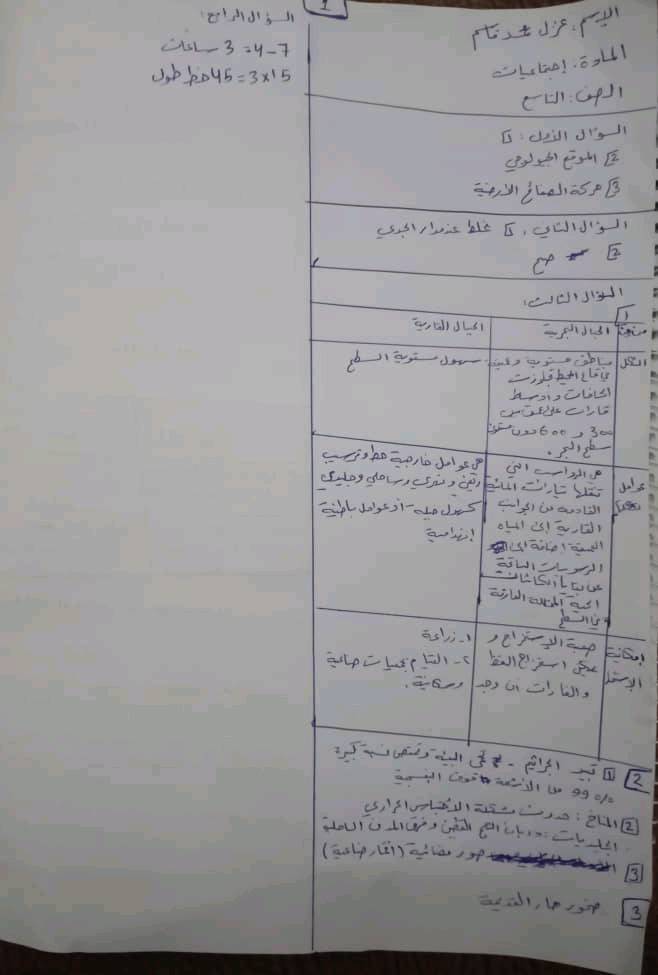 1
الاسم: غزل محمد قاسم
المادة: إجتماعيات
الصف: التاسع
السؤال الأول: 1
2 الموقع الجيولوجي
3 حركة الصفائح الأرضية
السؤال الثاني: 1 غلط عند مدار الجدي
2 صح
السؤال الثالث:
1
الجبال البحرية
الجبال القارية
الشكل
مناطق مستوية
في قاع المحيط
الحافات وأوسط
قارات على عمق من
300 و 600 دون مستوى
سطح البحر.
سهول مستوية السطح
عوامل
هي الرواسب التي
تنقلها تيارات المائية
القادمة من الجوانب
القارية إلى المياه
العميقة إضافة إلى
الرسوبيات
بقايا الكائنات
الحية
في السطح
هي عوامل خارجية حط وترسيب
ريحي ونهري وساحلي وجليدي
كسهول جبلة - أو عوامل باطنية
إنهدامية
إمكانية
الإستثمار
صعبة الإستخراج و
يمكن استخراج النفط
والغازات ان وجد
1- زراعة
2- القيام بمنشآت صناعية
وسكانية.
2 1 تبيد الجراثيم - تحمي البيئة وتمتص نسبة كبيرة
99% من الأشعة فوق البنفسجية
2 المناخ: حدوث مشكلة الاحتباس الحراري
الجليديات: ذوبان الثلج القطبين وغرق المدن الساحلية
3 صور فضائية (أقمار صناعية)
3 صخور القديمة
السؤال الرابع:
7-4=3 ساعات
15×3=45 خط طول